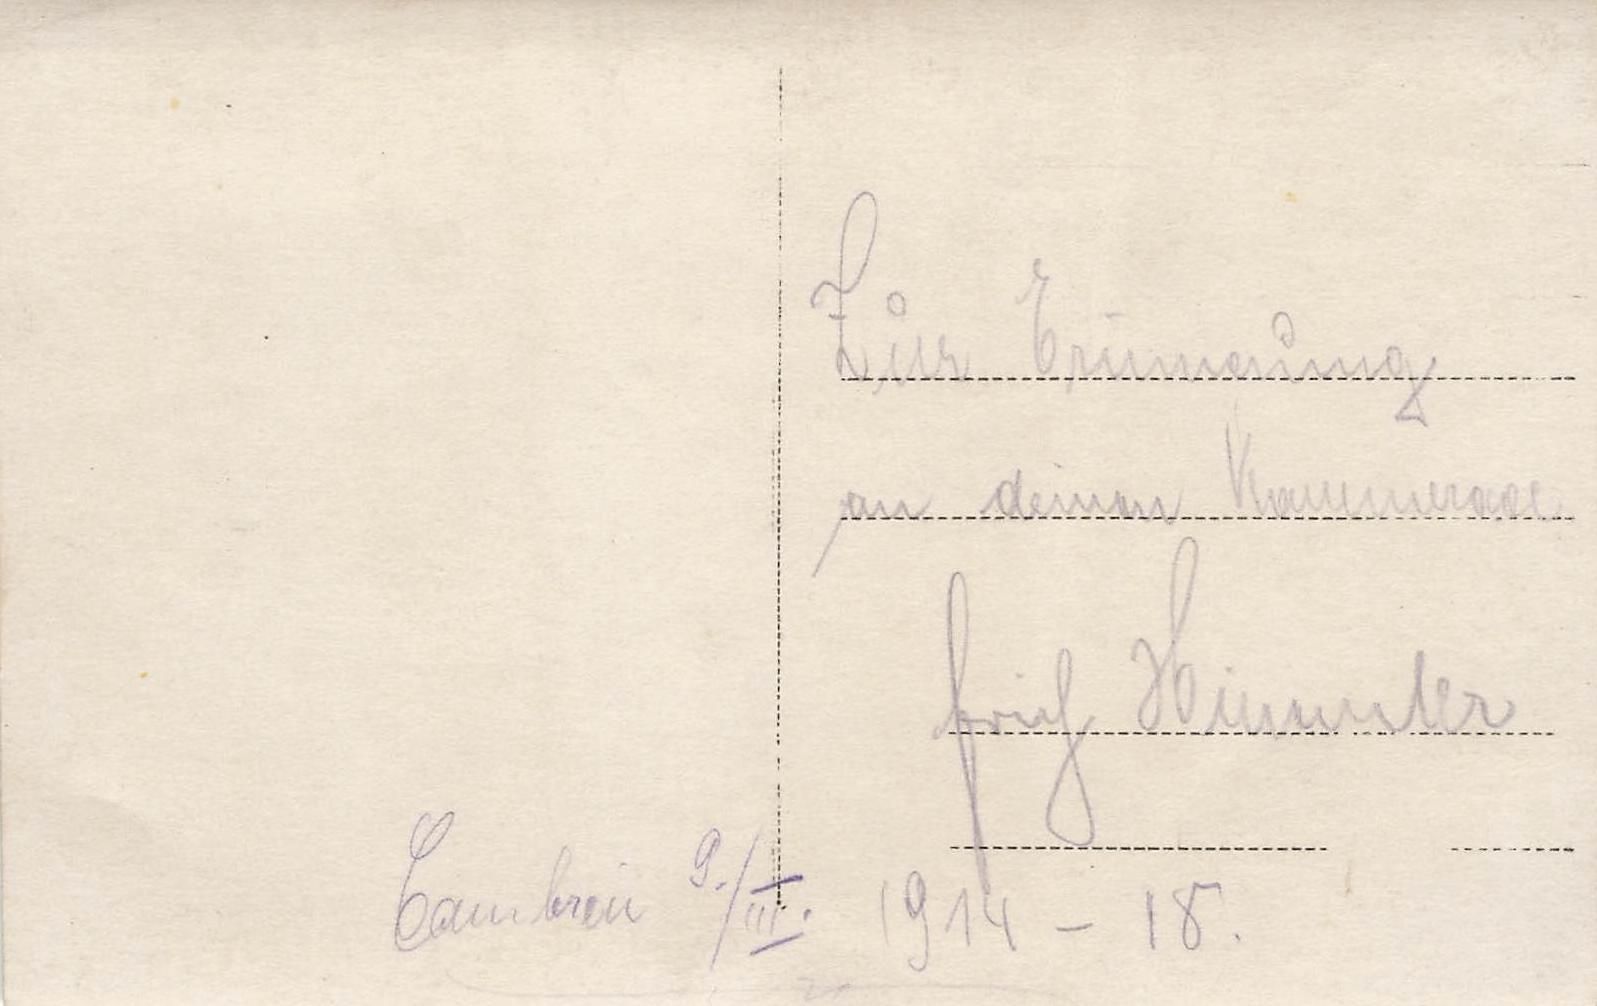 Zur Erinnerung
an deinen Kammerade
Fritz Himmler
Cambrai 9./III. 1914 – 18.